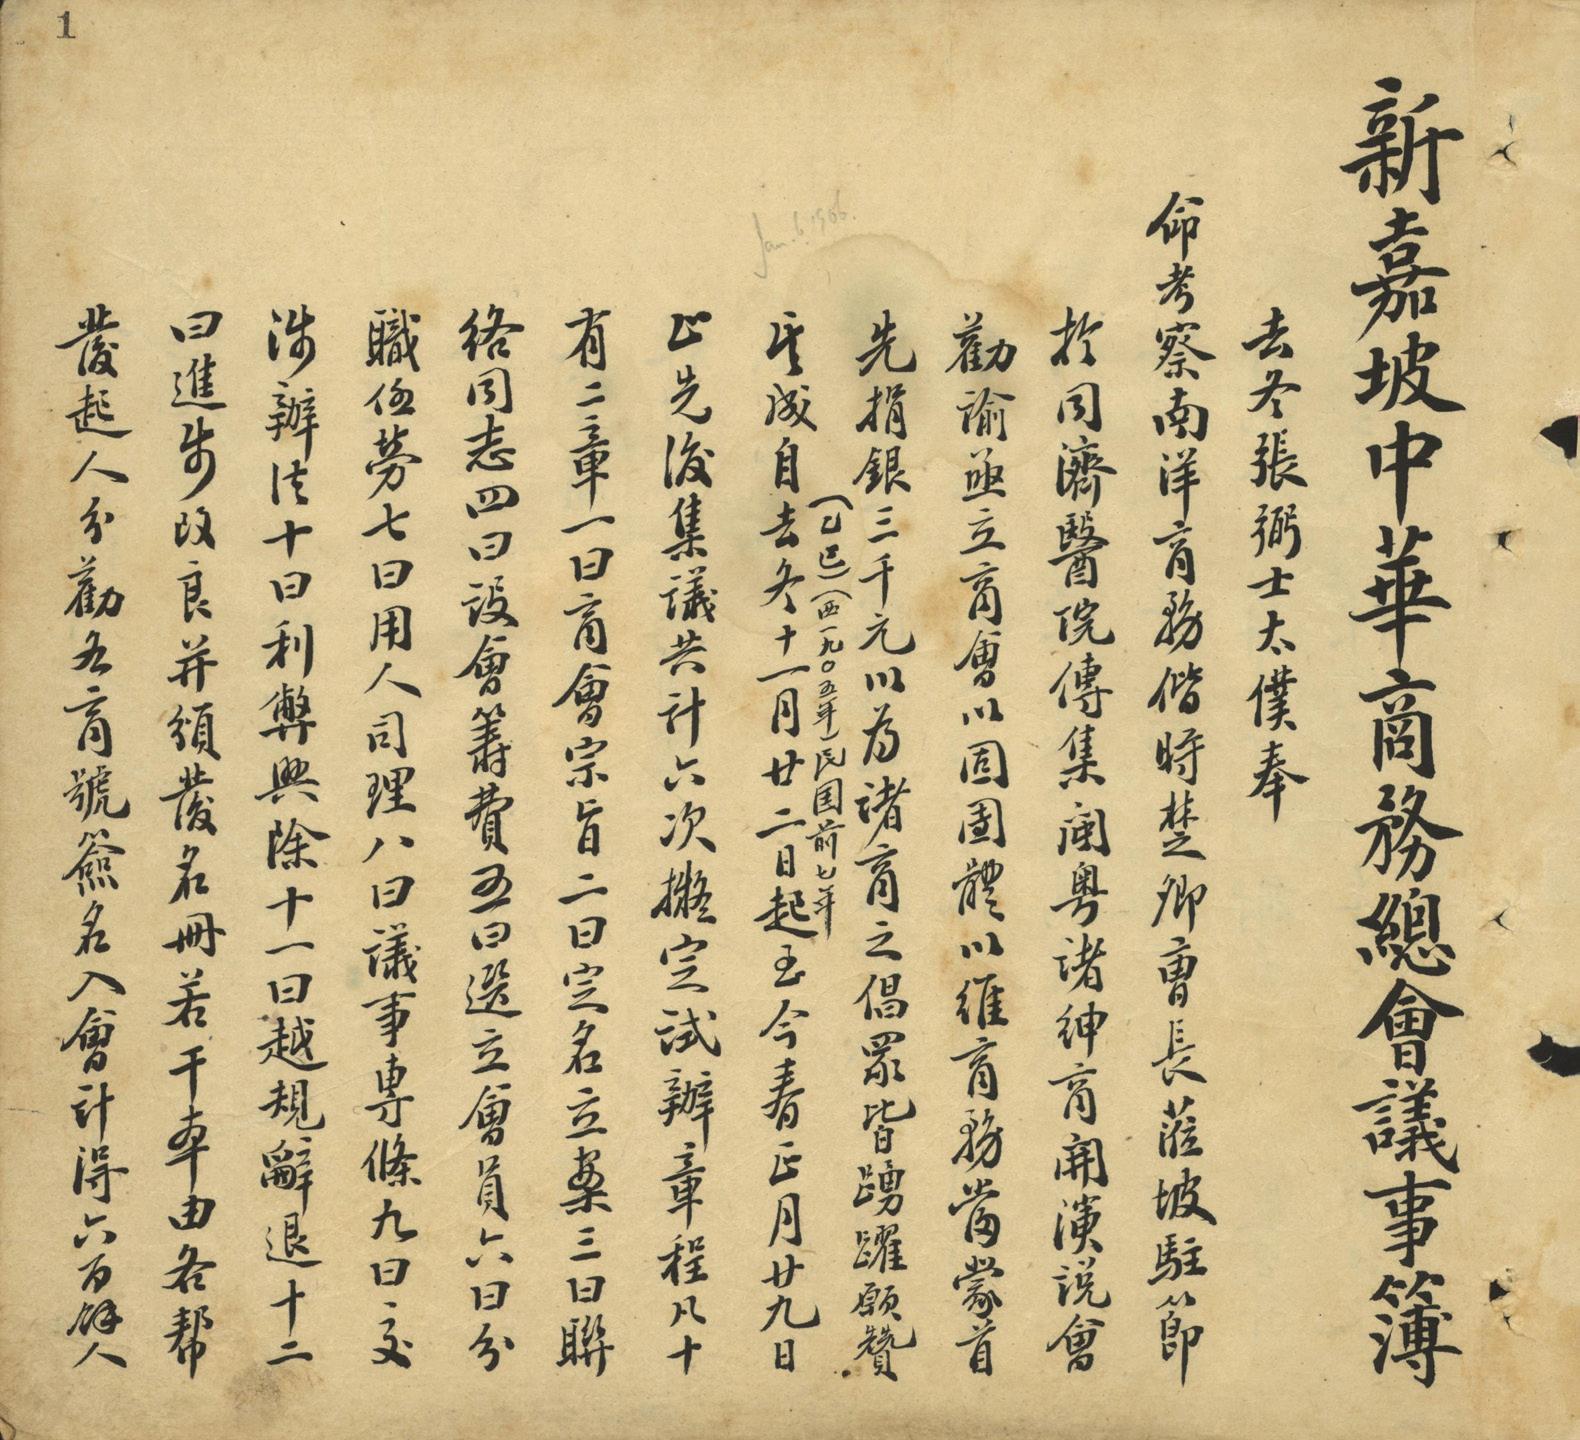 新嘉坡中華商務總會議事簿
去冬張弼士太僕奉
命考察南洋商務偕時楚卿曹長蒞坡駐節
於同濟醫院傳集閩粵諸紳商開演說會
勸諭亟立商會以固團體以維商務當蒙首
先捐銀三千元以為諸商之倡眾皆踴躍願贊
其成自去冬十一月廿二日起至今春正月廿九日
(乙巳)(西一九〇五年)民国前七年
止先後集議共計六次擬定試辦章程凡十
有二章一曰商會宗旨二曰定名立案三曰聯
絡同志四曰設會籌費五曰選立會員六曰分
職任勞七曰用人司理八曰議事專條九曰交
涉辦法十曰利弊興除十一曰越規辭退十二
曰進步改良并頒發名冊若干本由各幫
發起人分勸各商號簽名入會計得六百餘人
1
Jan. 6. 1906.